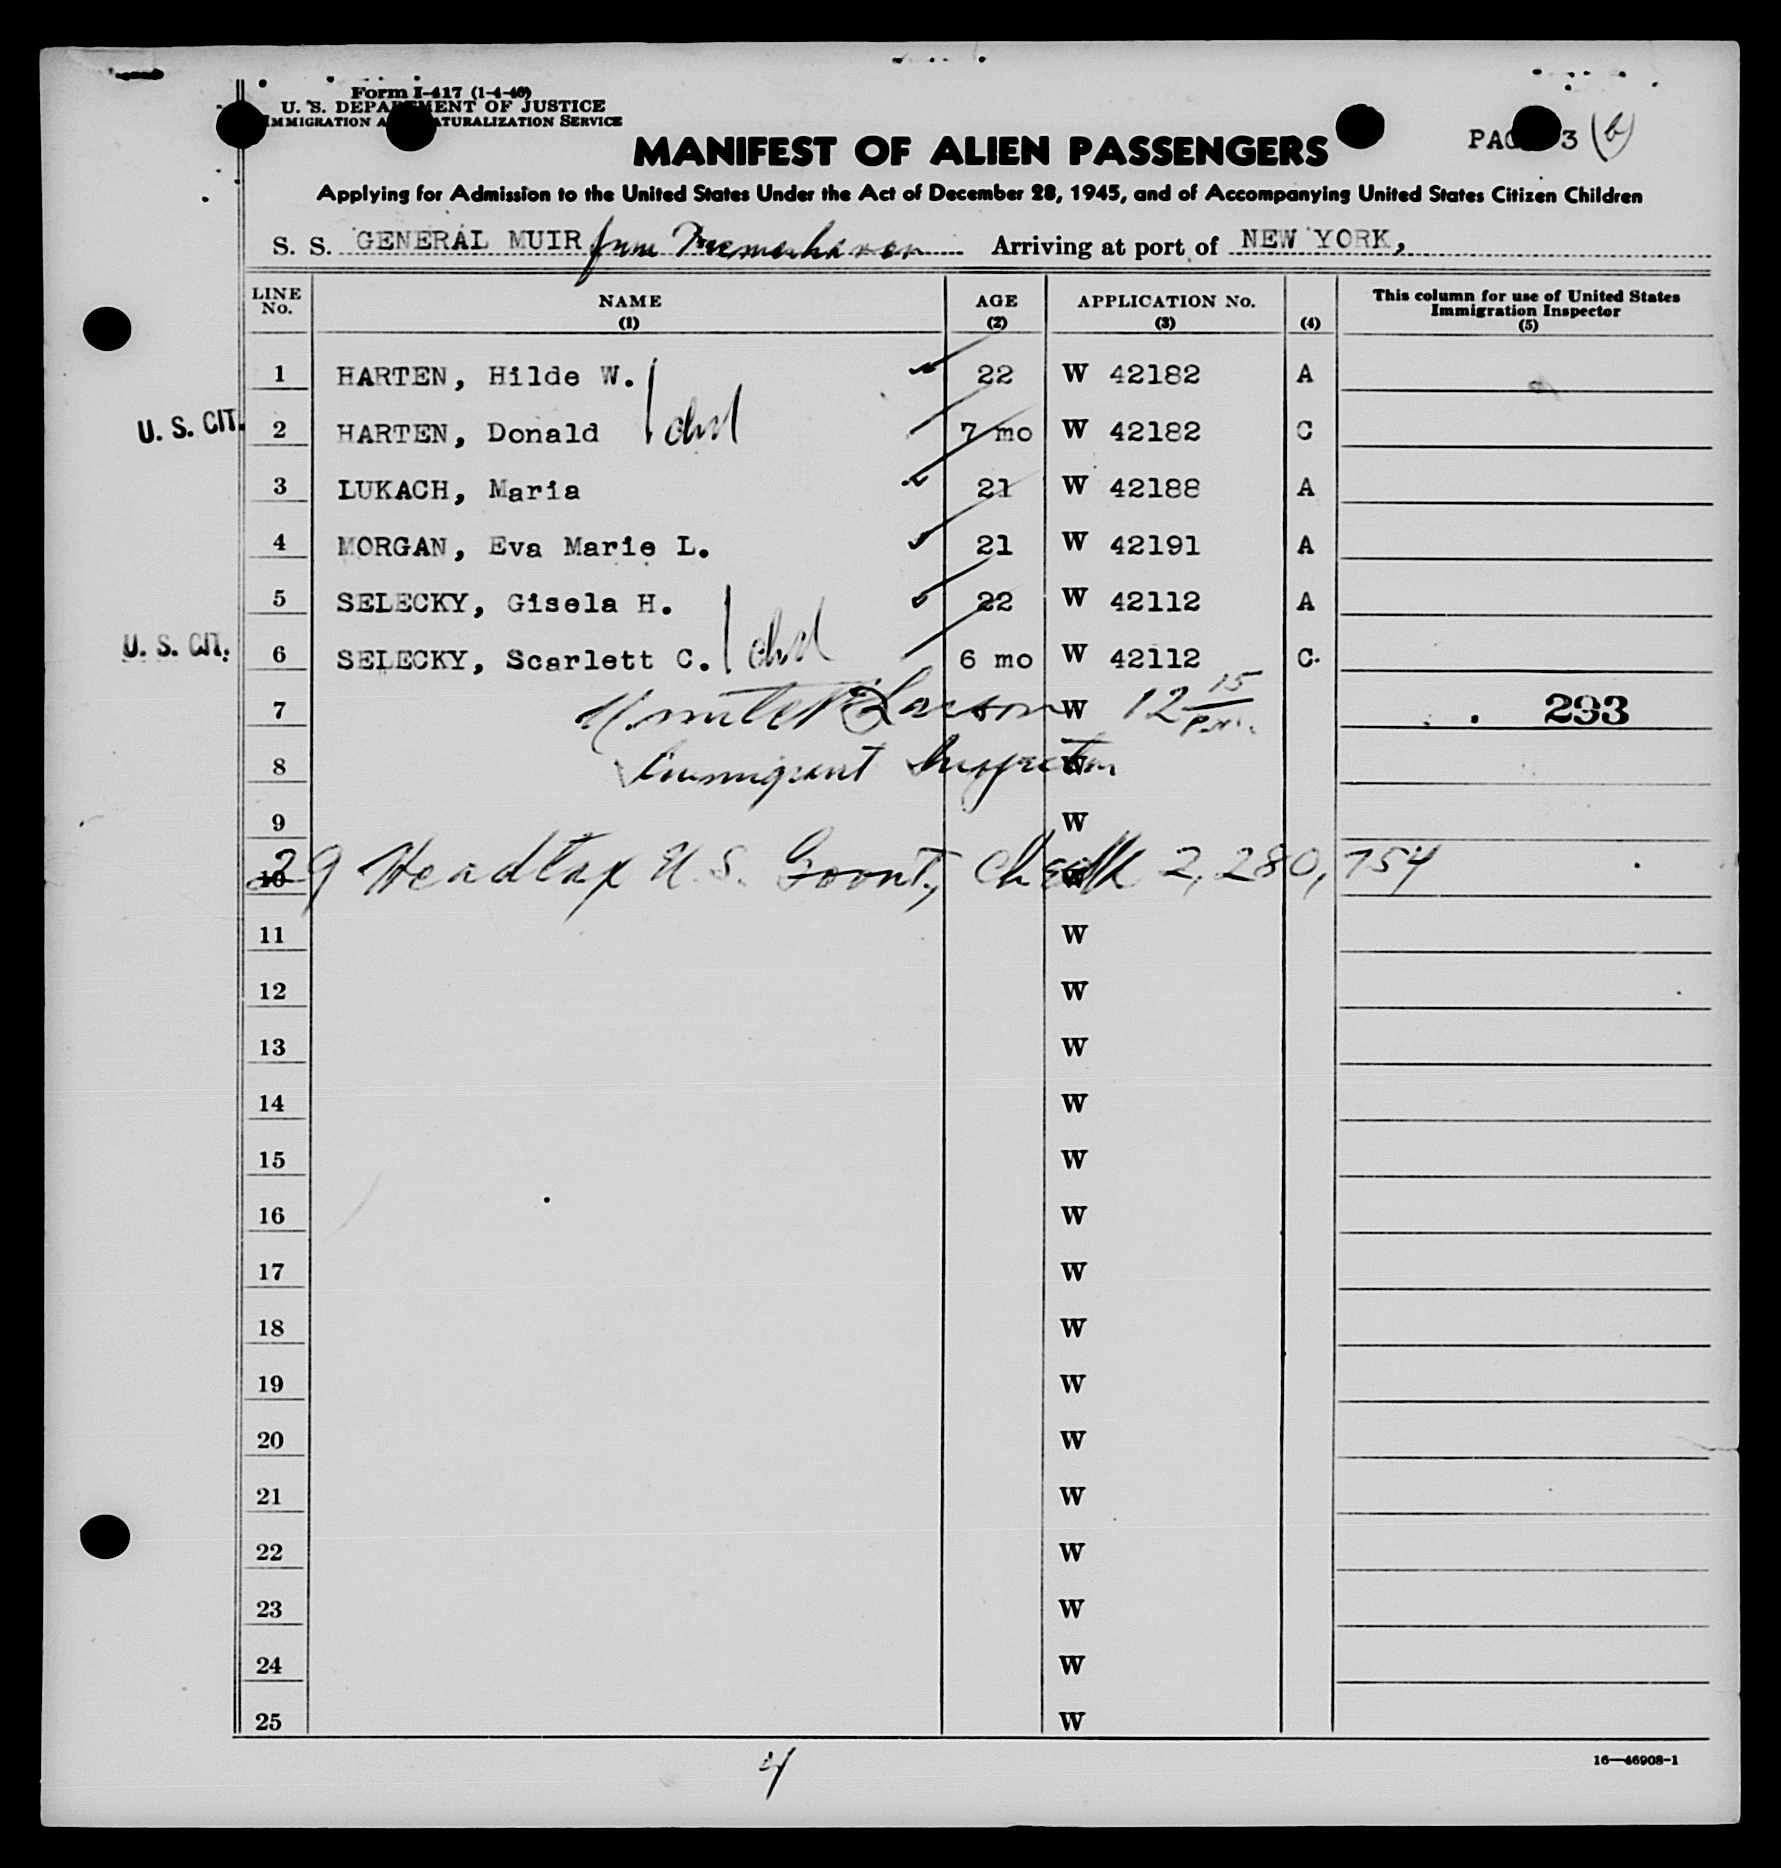 Form I-417 (1-4-46)
U. S. DEPARTMENT OF JUSTICE
IMMIGRATION AND NATURALIZATION SERVICE
MANIFEST OF ALIEN PASSENGERS
PAGE 3 (6)
Applying for Admission to the United States Under the Act of December 28, 1945, and of Accompanying United States Citizen Children
S. S. GENERAL MUIR from Bremerhaven Arriving at port of NEW YORK,
LINE No. NAME (1) AGE (2) APPLICATION No. (3) (4) This column for use of United States Immigration Inspector (5)
1 HARTEN, Hilde W. 22 W 42182 A
U. S. CIT. 2 HARTEN, Donald 7 mo W 42182 C
3 LUKACH, Maria 21 W 42188 A
4 MORGAN, Eva Marie L. 21 W 42191 A
5 SELECKY, Gisela H. 22 W 42112 A
U. S. CIT. 6 SELECKY, Scarlett C. 6 mo W 42112 C.
7 Larson W 12 15 P.M. 293
8 Immigrant Inspector W
9 W
10 29 Headtax U.S. Govnt., Check W 2,280,754
11 W
12 W
13 W
14 W
15 W
16 W
17 W
18 W
19 W
20 W
21 W
22 W
23 W
24 W
25 W
4
16—46908-1